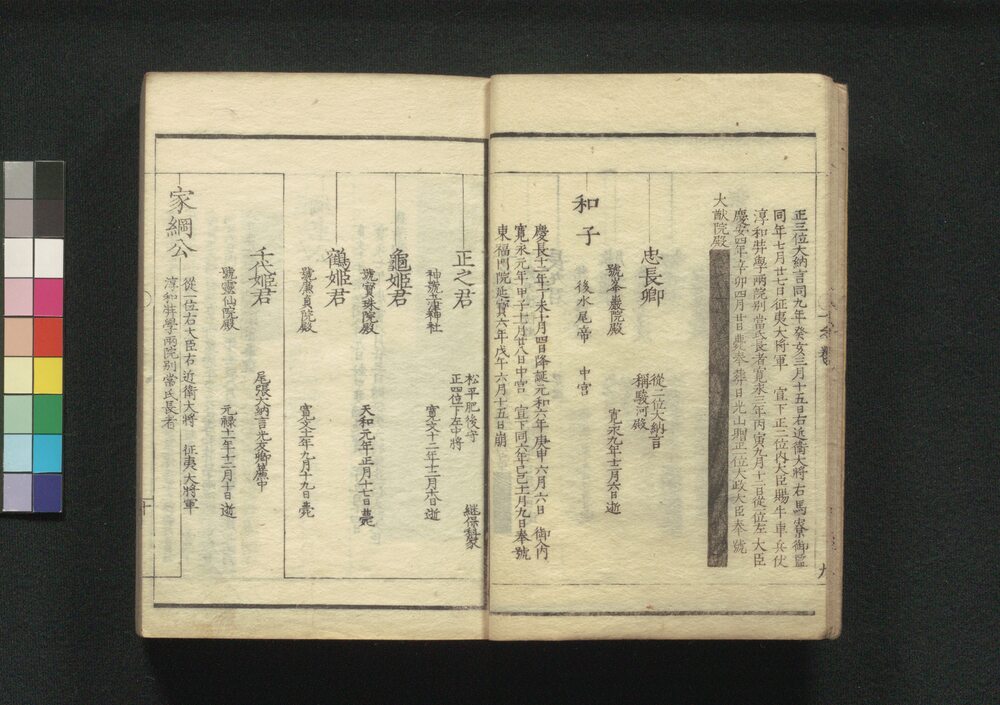 正三位大納言同九年癸亥三月十五日右近衛大將右馬寮御監
同年七月廿七日征夷大將軍　宣下正二位内大臣賜牛車兵仗
淳和弉學兩院別當氏長者寛永三年丙寅九月十三日從一位左大臣
慶安四年辛卯四月廿日薨奉葬日光山贈正一位大政大臣奉號
大猷院殿
忠長卿
從二位大納言
稱駿河殿
號峯巖院殿
寛永九年十二月六日逝
和子
後水尾帝　中宮
慶長十二年丁未十月四日降誕元和六年庚申六月六日　御入内
寛永元年甲子十一月廿八日中宮　宣下同六年己巳十一月九日奉號
東福門院延寳六年戊午六月十五日崩
正之君
松平肥後守
正四位下左中將
繼保科家
神號土津神社
寛文十二年十二月十八日逝
龜姫君
號寳珠院殿
天和元年正月十七日薨
鶴姫君
號廉貞院殿
寛文十一年九月十九日薨
千代姫君
尾張大納言光友卿簾中
號靈仙院殿
元禄十一年十二月十日逝
家綱公
從一位右大臣右近衛大將　征夷大將軍
淳和弉學兩院別當氏長者
九
十